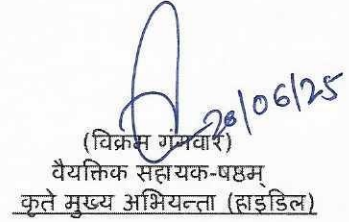 20/06/25
(विक्रम गंगवार)
वैयक्तिक सहायक-षष्ठम्
कृते मुख्य अभियन्ता (हाइडिल)